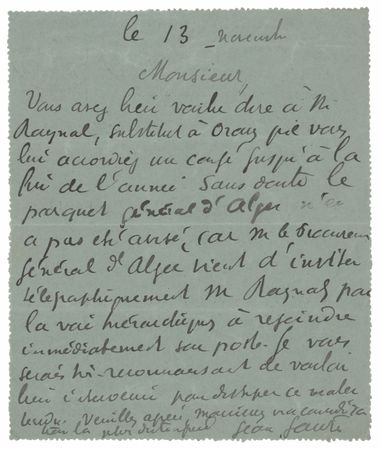 le 13 novembre
Monsieur,
Vous avez bien voulu dire à M
Raynal, substitut à Oran que vous
lui accordiez un congé jusqu'à la
fin de l'année. Sans doute le
parquet général d'Alger n'en
a pas été avisé, car M le Procureur
général d'Alger vient d'inviter
télégraphiquement M Raynal par
la voie hiérarchique à rejoindre
immédiatement son poste. Je vous
serais très reconnaissant de vouloir
bien intervenir pour dissiper ce malen
tendu. Veuillez agréer, monsieur, ma considéra
tion la plus distinguée Jean